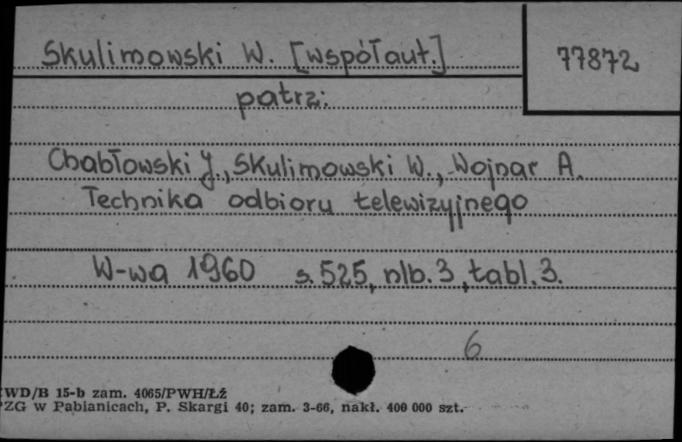 Skulimowski W. [współaut.]
77872
patrz:
Chabłowski J., Skulimowski W., Wojnar A.
Technika odbioru telewizyjnego
W-wa 1960 s. 525, nlb. 3, tabl. 3.
6
WD/B 15-b zam. 4065/PWH/Łż
PZG w Pabianicach, P. Skargi 40; zam. 3-66, nakł. 400 000 szt.